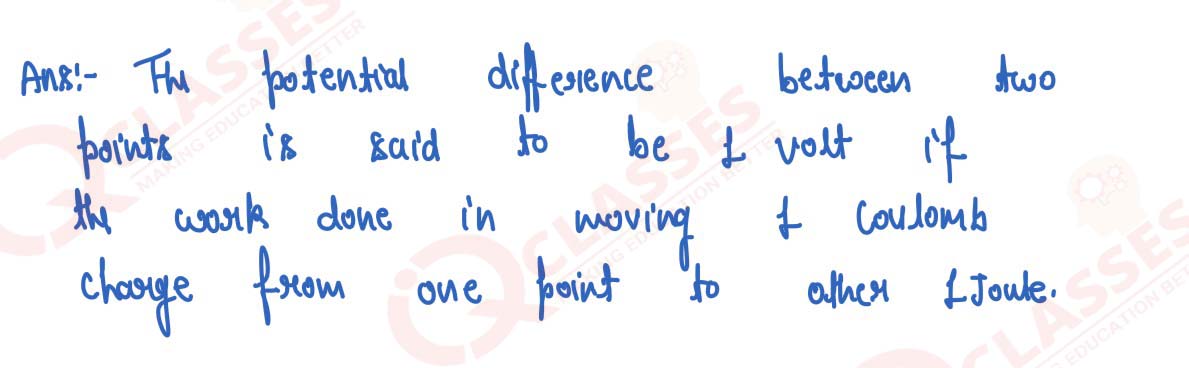 Ans:- The potential difference between two
points is said to be 1 volt if
the work done in moving 1 Coulomb
charge from one point to other 1 Joule.
IQ CLASSES
MAKING EDUCATION BETTER